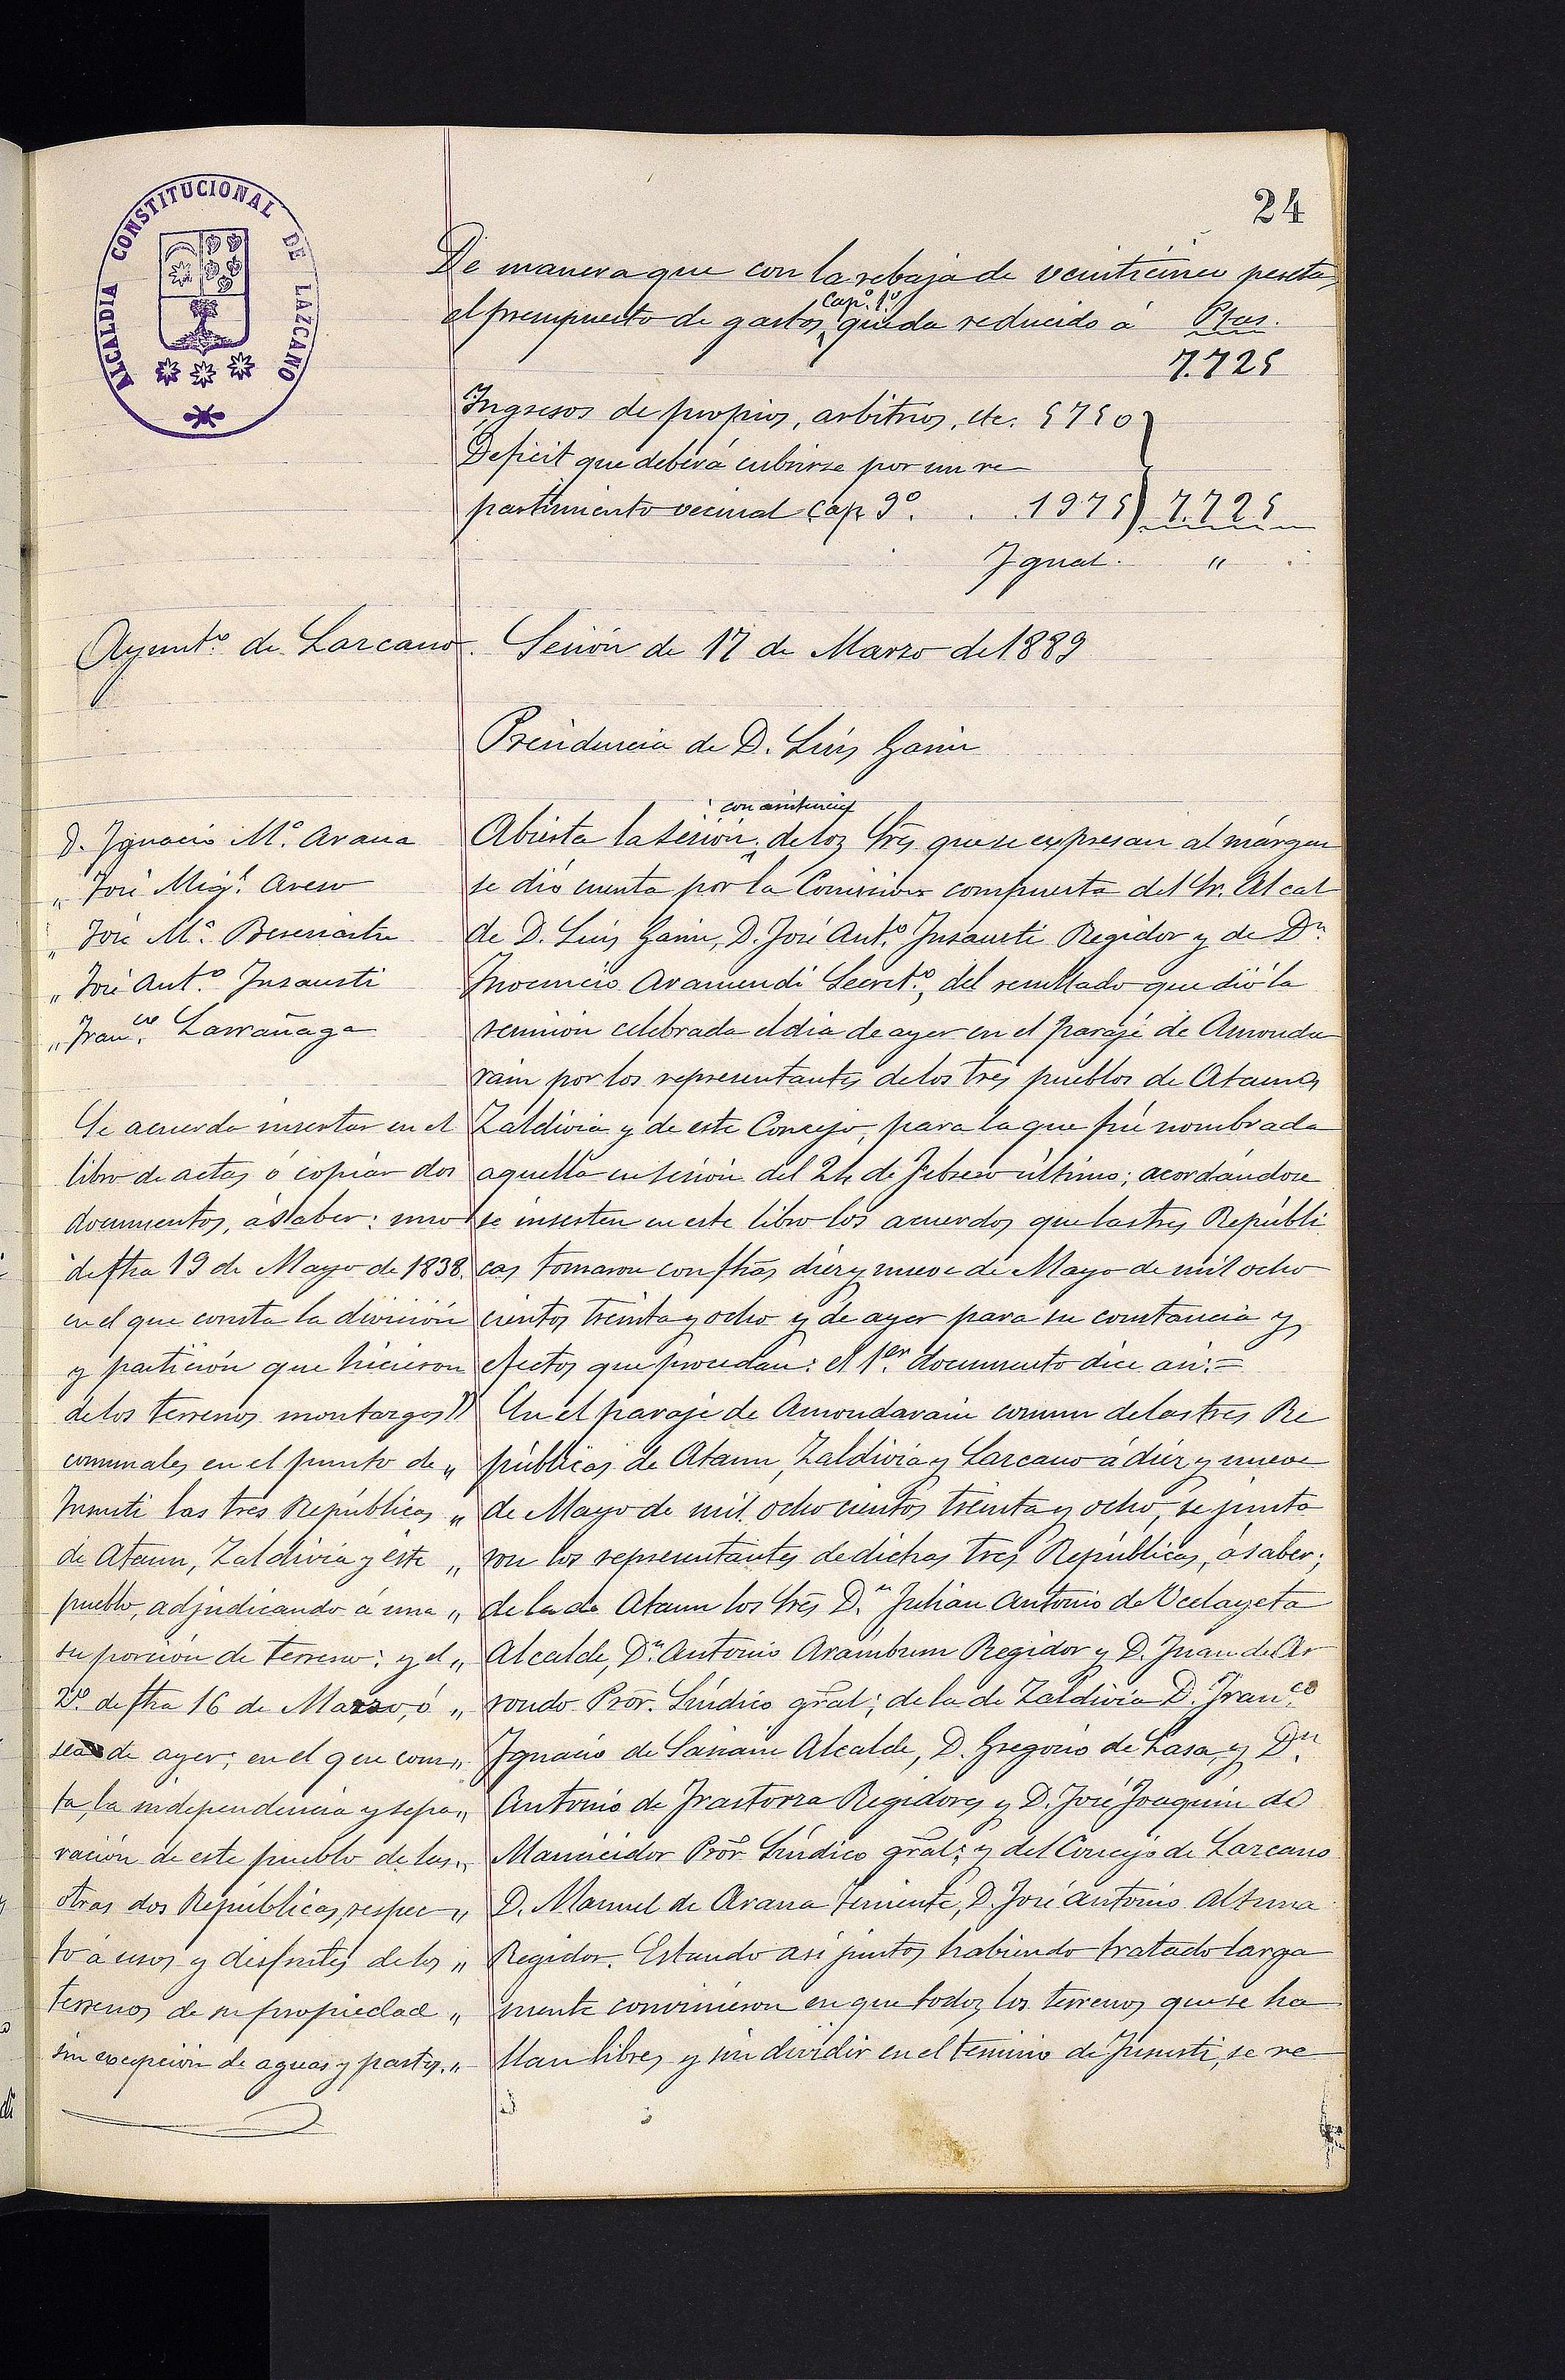 24
ALCALDIA CONSTITUCIONAL DE LAZCANO
De manera que con la rebaja de veinticinco pesetas
el presupuesto de gastos, cap.º 1º, queda reducido á Ptas.
7.725
Ingresos de propios, arbitrios, etc. 5750
Deficit que deberá cubrirse por un re
partimiento vecinal cap 9º. . 1975) 7.725
Igual. "
Ayunt.º de Lazcano. Sesión de 17 de Marzo de 1889
Presidencia de D. Luis Garin
D. Ignacio M.ª Arana
" José Mig.l Aseso
" José M.ª
" José Ant.º Insausti
" Fran.co Larrañaga
Se acuerda insertar en el
libro de actas ó copiar dos
documentos, á saber: uno
de fha 19 de Mayo de 1838.
en el que consta la división
y partición que hicieron
de los terrenos montazgos
comunales en el punto de
Jusuti las tres Repúblicas
de Ataun, Zaldivia y éste
pueblo, adjudicando á una
su porción de terreno: y el
2º. de fha 16 de Marzo, ó
sea de ayer; en el que cons
ta, la independencia y sepa
ración de este pueblo de las
otras dos Repúblicas, respec
to á usos y disfrutes de los
terrenos de su propiedad
sin excepción de aguas y pastos.
con asistencia
Abierta la sesión, de los Sres que se expresan al márgen
se dió cuenta por la Comision compuesta del Sr. Alcal
de D. Luis Garin, D. José Ant.º Insausti Regidor y de Dn.
Inocencio Aramendi Secret.º, del resultado que dió la
reunion celebrada el dia de ayer en el paraje de Amonda
rain por los representantes de los tres pueblos de Ataun,
Zaldivia y de este Concejo, para la que fué nombrada
aquella en sesión del 24 de Febrero último; acordándose
se inserten en este libro los acuerdos que las tres Repúbli
cas tomaron con fhas diez y nueve de Mayo de mil ocho
cientos treinta y ocho y de ayer para su constancia y
efectos que procedan: el 1er. documento dice así:=
" En el paraje de Amondarain comun de las tres Re
" públicas de Ataun, Zaldivia y Lazcano á diez y nueve
" de Mayo de mil ochocientos treinta y ocho, se junta
" ron los representantes de dichas tres Repúblicas, á saber;
" de la de Ataun los Sres Dn. Julian Antonio de Urdayeta
" Alcalde, Dn. Antonio Aramburu Regidor y D. Juan de Ar
" rondo Pror. Síndico gral; de la de Zaldivia D. Fran.co
" Ignacio de Sariain Alcalde, D. Gregorio de Lasa, y Dn.
" Antonio de Irastorza Regidores y D. José Joaquin de
" Mancicidor Pror Síndico gral; y del Concejo de Lazcano
" D. Manuel de Arana Teniente, D. José Antonio Altuna
" Regidor. Estando así juntos habiendo tratado larga
" mente convinieron en que todos los terrenos que se ha
" llan libres y sin dividir en el termino de Jusuti, se re